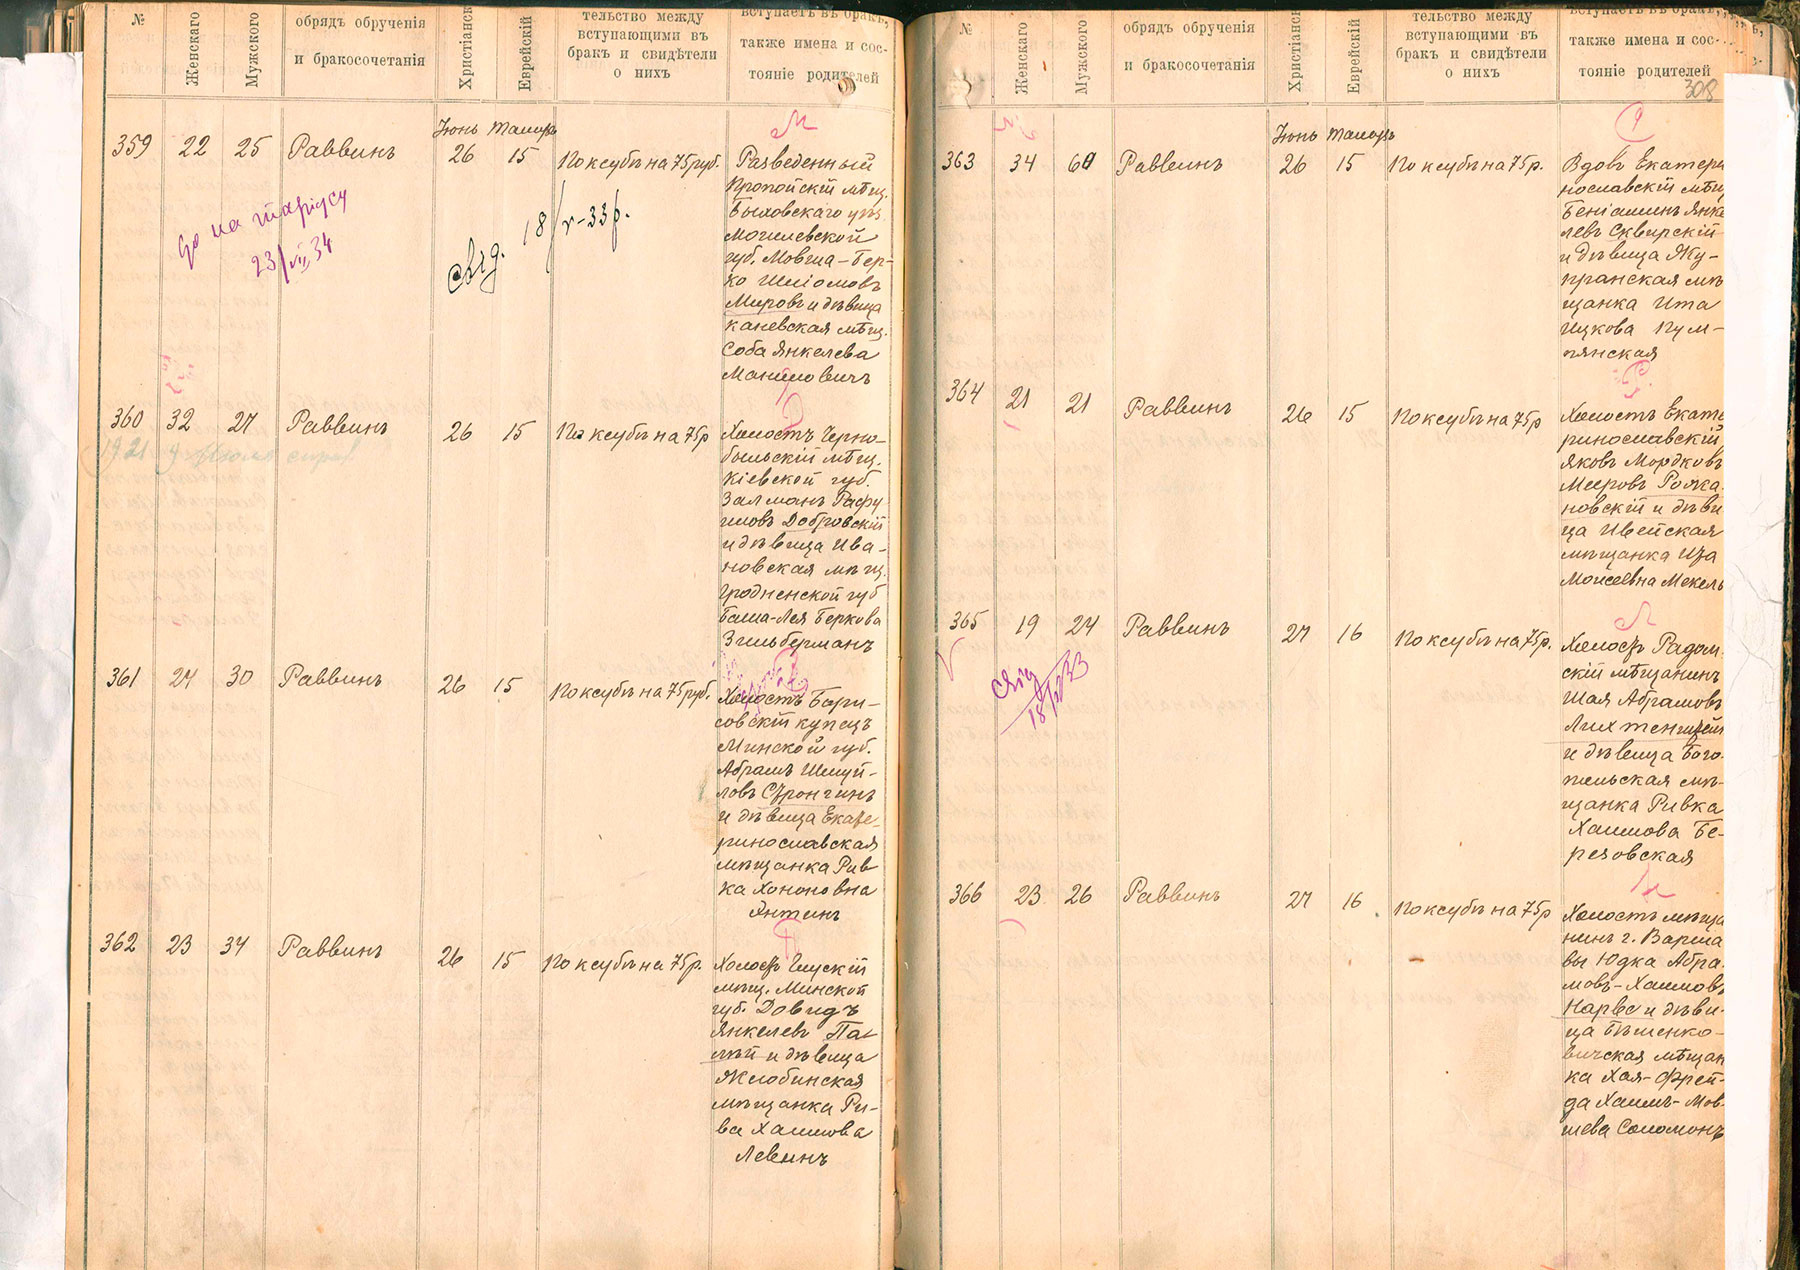 №
Женскаго
Мужского
обрядъ обрученія
и бракосочетанія
Христіанск
Еврейскій
тельство между
вступающими въ
бракъ и свидѣтели
о нихъ
вступаетъ въ бракъ,
также имена и сос-
тояніе родителей
Іюнь Тамузъ
359 22 25 Раввинъ 26 15 По ксубѣ на 75 руб.
Разведенный
Пропойскій мѣщ.
Быховскаго уѣз.
Могилевской
губ. Мовша-Бер-
ко Шліомовъ
Мировъ и дѣвица
каневская мѣщ.
Соба Янкелева
Маниловичъ
23/VII 34
свид. 18/V-33 г.
360 32 27 Раввинъ 26 15 По ксубѣ на 75 р
1921
Холостъ Черно-
быльскій мѣщ.
Кіевской губ.
Залманъ Рафу
иловъ Добровскій
и дѣвица Ива-
новская мѣщ.
Гродненской губ
Баша-Лея Беркова
Зильберманъ
361 24 30 Раввинъ 26 15 По ксубѣ на 75 руб.
Холостъ Бори-
совскій купецъ
Минской губ.
Абрамъ Шмуй-
ловъ Стронгинъ
и дѣвица Екате-
ринославская
мѣщанка Рив-
ка Хононовна
Янтинъ
362 23 34 Раввинъ 26 15 По ксубѣ на 75 р.
Холостъ Глускій
мѣщ. Минской
губ. Довидъ
Янкелевъ Па-
лѣй и дѣвица
Жлобинская
мѣщанка Ри-
ва Хаимова
Левинъ
№
Женскаго
Мужского
обрядъ обрученія
и бракосочетанія
Христіанск
Еврейскій
тельство между
вступающими въ
бракъ и свидѣтели
о нихъ
вступаетъ въ бракъ,
также имена и сос-
тояніе родителей
308
Іюнь Тамузъ
363 34 60 Раввинъ 26 15 По ксубѣ на 75 р.
Вдовъ Екатери
нославскій мѣщ
Беніаминъ Янке
левъ Сквирскій
и дѣвица Жу-
пранская мѣ-
щанка Ита
Ицкова Пум-
пянская
364 21 21 Раввинъ 26 15 По ксубѣ на 75 р
Холостъ Екате
ринославскій
Яковъ Мордковъ
Мееровъ Рожа
новскій и дѣви
ца Ивейская
мѣщанка Иза
Моисеевна Мекель
365 19 24 Раввинъ 27 16 По ксубѣ на 75 р.
Холостъ Радом
скій мѣщанинъ
Шая Абрамовъ
Лихтенштейн
и дѣвица Бого-
польская мѣ-
щанка Ривка
Хаимова Бе-
резовская
366 23 26 Раввинъ 27 16 По ксубѣ на 75 р
Холостъ мѣща
нинъ г. Варша
вы Юдка Абра
мовъ-Хаимовъ
Нарвес и дѣви-
ца Бѣшенко-
вичская мѣщан
ка Хая-Фрей-
да Хаимъ-Мов-
шева Соломонъ